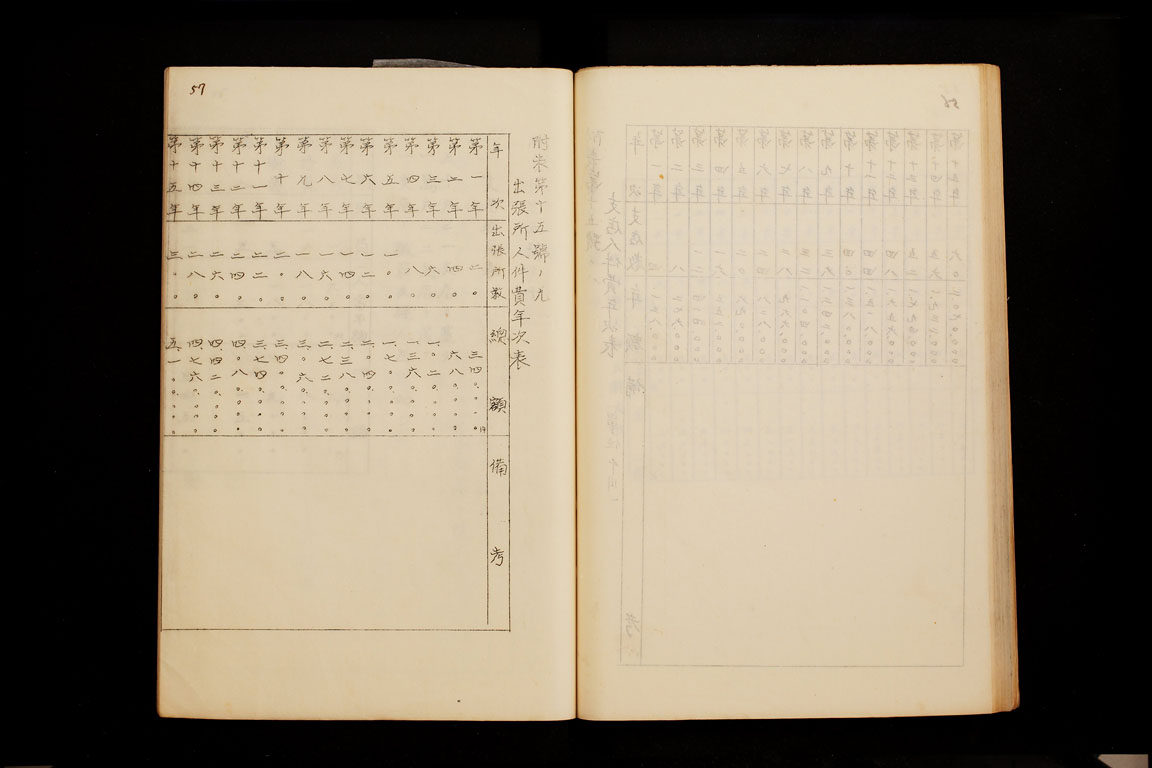 57
附表第十五號ノ九
出張所人件費年次表
年次 出張所數 總額 備考
第一年 二〇 三四〇.〇〇〇円
第二年 四〇 六八〇.〇〇〇
第三年 六〇 一、〇二〇.〇〇〇
第四年 八〇 一、三六〇.〇〇〇
第五年 一〇〇 一、七〇〇.〇〇〇
第六年 一二〇 二、〇四〇.〇〇〇
第七年 一四〇 二、三八〇.〇〇〇
第八年 一六〇 二、七二〇.〇〇〇
第九年 一八〇 三、〇六〇.〇〇〇
第十年 二〇〇 三、四〇〇.〇〇〇
第十一年 二二〇 三、七四〇.〇〇〇
第十二年 二四〇 四、〇八〇.〇〇〇
第十三年 二六〇 四、四二〇.〇〇〇
第十四年 二八〇 四、七六〇.〇〇〇
第十五年 三〇〇 五、一〇〇.〇〇〇